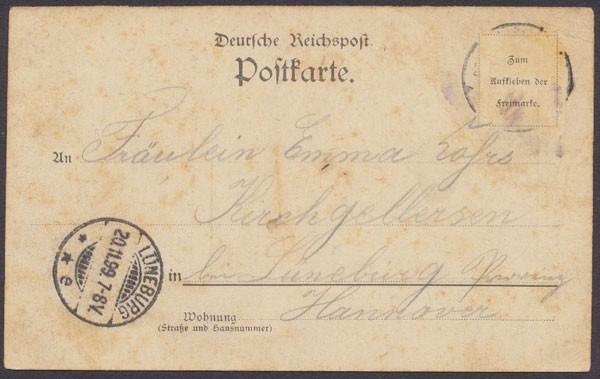 Deutsche Reichspost
Postkarte.
Zum
Aufkleben der
Freimarke.
An Fräulein Emma Lohrs
Kirchgellersen
in bei Lüneburg Provinz
Hannover
Wohnung
(Straße und Hausnummer)
LÜNEBURG
20.11.99. 7-8V.
* * e